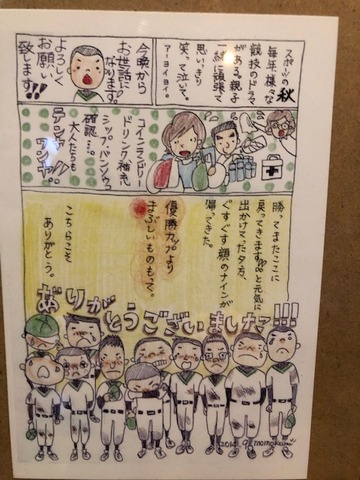 スポーツの秋
毎年、様々な
競技のドラマ
がある。親子
一緒に頑張て
思いっきり
笑って泣いて。
アーヨイヨイ。
今晩から
お世話に
なります。
よろしく
お願い
致します!!
コインランドリー
ドリンク補充
シップ、バンソーコ
確認…。
大人たちも
テンヤ
ワンヤ。
勝ってまたここに
戻ってきます!!と元気に
出かけてった夕方、
ぐすぐす顔のナインが
帰ってきた。
優勝カップより
まぶしいものもって。
こちらこそ
ありがとう。
ありがとうございました!!!